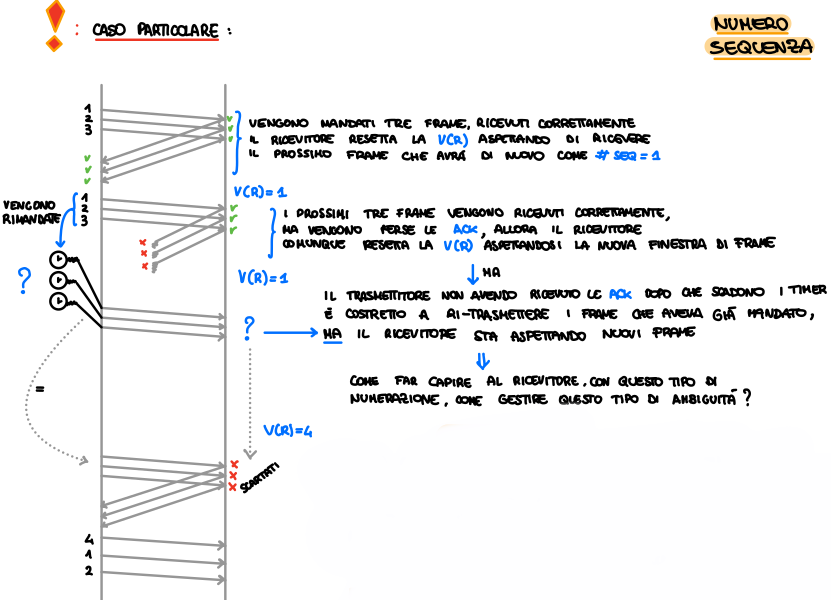 ! : CASO PARTICOLARE :
NUMERO
SEQUENZA
1
2
3
VENGONO MANDATI TRE FRAME, RICEVUTI CORRETTAMENTE
IL RICEVITORE RESETTA LA V(R) ASPETTANDO DI RICEVERE
IL PROSSIMO FRAME CHE AVRÁ DI NUOVO COME # SEQ = 1
V(R)=1
VENGONO
RIMANDATE
1
2
3
I PROSSIMI TRE FRAME VENGONO RICEVUTI CORRETTAMENTE,
MA VENGONO PERSE LE ACK, ALLORA IL RICEVITORE
COMUNQUE RESETTA LA V(R) ASPETTANDOSI LA NUOVA FINESTRA DI FRAME
V(R)=1
MA
?
IL TRASMETTITORE NON AVENDO RICEVUTO LE ACK DOPO CHE SCADONO I TIMER
É COSTRETTO A RI-TRASMETTERE I FRAME CHE AVEVA GIÁ MANDATO,
?
MA IL RICEVITORE STA ASPETTANDO NUOVI FRAME
COME FAR CAPIRE AL RICEVITORE, CON QUESTO TIPO DI
NUMERAZIONE, COME GESTIRE QUESTO TIPO DI AMBIGUITÁ ?
=
V(R)=4
SCARTATI
4
1
2